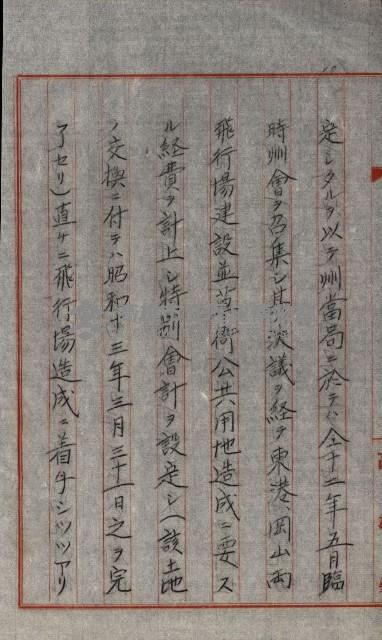 定シタルヲ以テ州當局ニ於テハ仝十二年五月臨
時州會ヲ召集シ其決議ヲ経テ東港、岡山両
飛行場建設並官衙公共用地造成ニ要ス
ル経費ヲ計上シ特別會計ヲ設定シ(該土地
ノ交換ニ付テハ昭和十三年三月三十一日之ヲ完
了セリ)直ケニ飛行場造成ニ着手シツツアリ